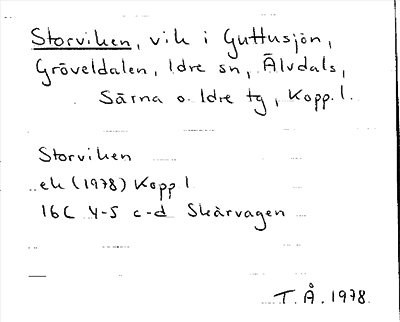 Storviken, vik i Guttusjön,
Gröveldalen, Idre sn, Älvdals,
Särna o. Idre tg, Kopp. l.
Storviken
ek (1978) Kopp l
16C 4-5 c-d Skärvagen
T. Å. 1978